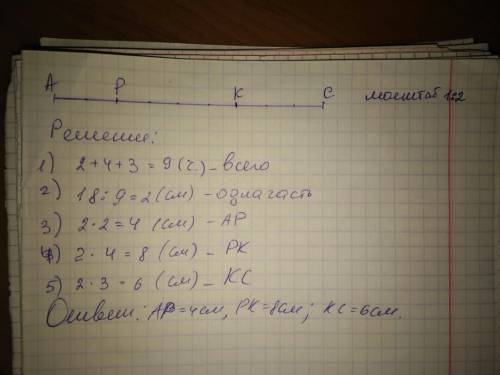 А Р К С масштаб 1:2
Решение:
1) 2+4+3=9(ч.)-всего
2) 18:9=2(см)-одна часть
3) 2·2=4 (см)-АР
4) 2·4=8 (см)-РК
5) 2·3=6 (см)-КС
Ответ: АР=4см, РК=8см; КС=6см.